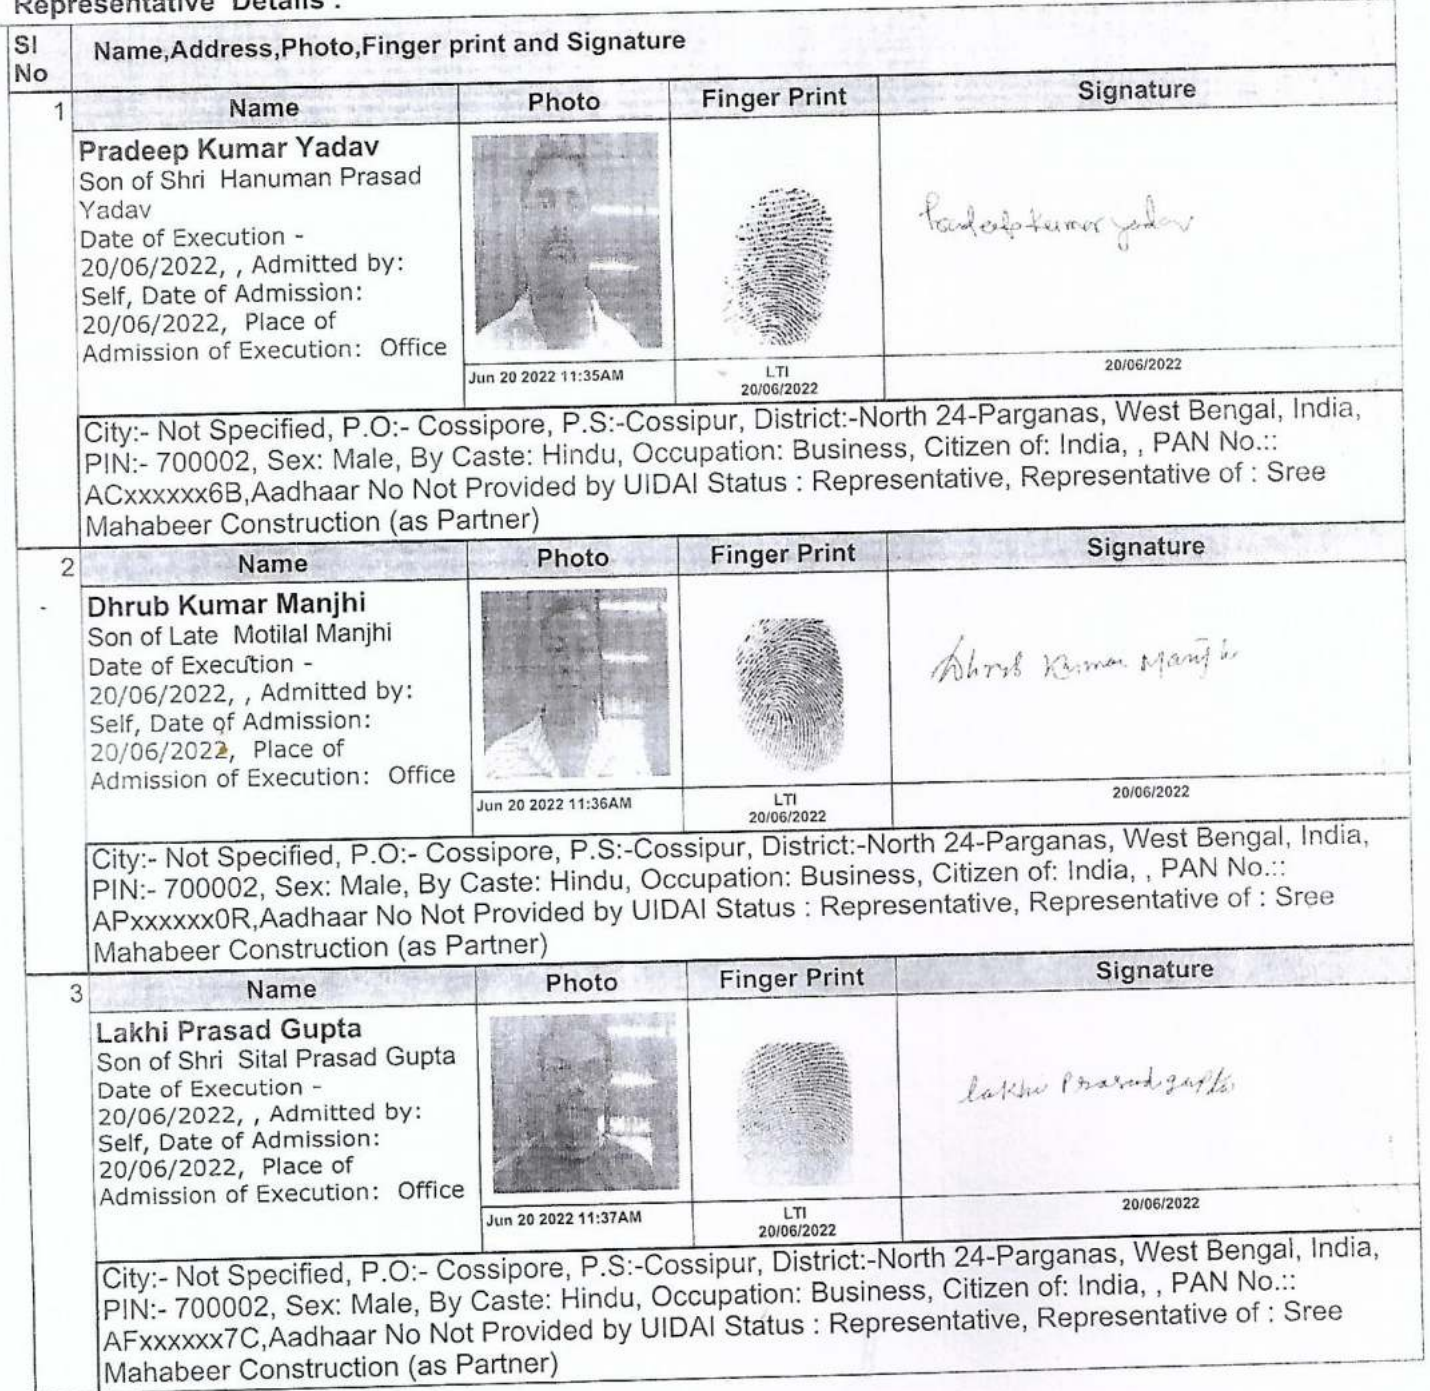 Representative Details :
Sl No
Name,Address,Photo,Finger print and Signature
1
Name Photo Finger Print Signature
Pradeep Kumar Yadav
Son of Shri Hanuman Prasad
Yadav
Date of Execution -
20/06/2022, , Admitted by:
Self, Date of Admission:
20/06/2022, Place of
Admission of Execution: Office
Pradeep kumar yadav
Jun 20 2022 11:35AM
LTI
20/06/2022
20/06/2022
City:- Not Specified, P.O:- Cossipore, P.S:-Cossipur, District:-North 24-Parganas, West Bengal, India,
PIN:- 700002, Sex: Male, By Caste: Hindu, Occupation: Business, Citizen of: India, , PAN No.::
ACxxxxxx6B,Aadhaar No Not Provided by UIDAI Status : Representative, Representative of : Sree
Mahabeer Construction (as Partner)
2
Name Photo Finger Print Signature
Dhrub Kumar Manjhi
Son of Late Motilal Manjhi
Date of Execution -
20/06/2022, , Admitted by:
Self, Date of Admission:
20/06/2022, Place of
Admission of Execution: Office
Dhrub Kumar Manjhi
Jun 20 2022 11:36AM
LTI
20/06/2022
20/06/2022
City:- Not Specified, P.O:- Cossipore, P.S:-Cossipur, District:-North 24-Parganas, West Bengal, India,
PIN:- 700002, Sex: Male, By Caste: Hindu, Occupation: Business, Citizen of: India, , PAN No.::
APxxxxxx0R,Aadhaar No Not Provided by UIDAI Status : Representative, Representative of : Sree
Mahabeer Construction (as Partner)
3
Name Photo Finger Print Signature
Lakhi Prasad Gupta
Son of Shri Sital Prasad Gupta
Date of Execution -
20/06/2022, , Admitted by:
Self, Date of Admission:
20/06/2022, Place of
Admission of Execution: Office
lakhi Prasad gupta
Jun 20 2022 11:37AM
LTI
20/06/2022
20/06/2022
City:- Not Specified, P.O:- Cossipore, P.S:-Cossipur, District:-North 24-Parganas, West Bengal, India,
PIN:- 700002, Sex: Male, By Caste: Hindu, Occupation: Business, Citizen of: India, , PAN No.::
AFxxxxxx7C,Aadhaar No Not Provided by UIDAI Status : Representative, Representative of : Sree
Mahabeer Construction (as Partner)